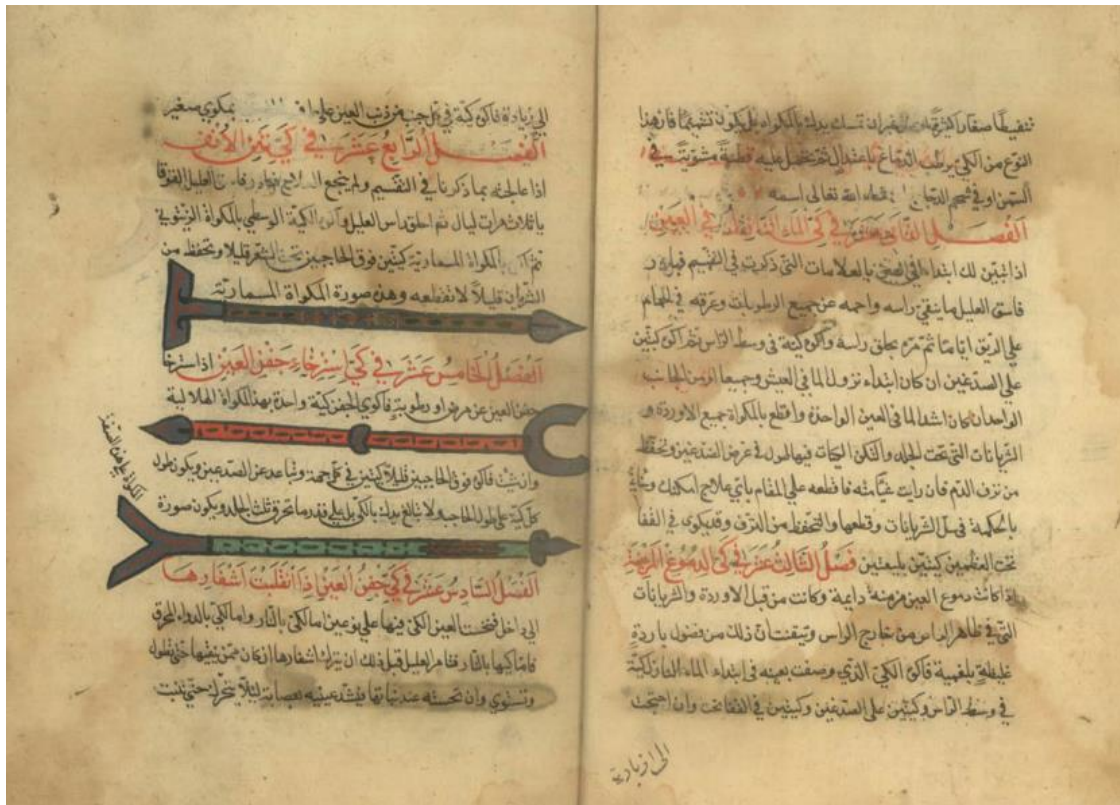 تنفيطًا صغارا كثيرة من غير ان تمسك يدك بالمكواة بل يكون تنقيطًا فان هذا
النوع من الكي يرطب الدماغ باعتدال ثم تحمل عليه قطنة مشربة في
السمن او في شحم الدجاج ان شاء الله تعالى اسمه
الفصل الثاني عشر في كي الماء النازل في العين
اذا تبين لك ابتداء الماء في العين بالعلامات التي ذكرت في التقسيم فبادر
فاسق العليل ما ينقي راسه واحمه عن جميع الرطوبات وعرقه في الحمام
على الريق اياما ثم مره بحلق راسه واكوه كية في وسط الراس ثم اكوه كيتين
على الصدغين ان كان ابتداء نزول الما في العينين جميعا او من الجانب
الواحد ان كان ابتدا الما في العين الواحدة واقطع بالمكواة جميع الاوردة و
الشريانات التي تحت الجلد ولتكن الكيات فيها طول في عرض الصدغين وتحفظ
من نزف الدم فان رايت شيًا منه فاقطعه على المقام باي علاج امكنك وسناتي
بالحكمة في سل الشريانات وقطعها والتحفظ من النزف وقد يكوى في القفا
تحت العظمين كيتين بليغتين فصل الثالث عشر في كي الدموع المزمنة
اذا كانت دموع العين مزمنة دايمة وكانت من قبل الاوردة والشريانات
التي في ظاهر الراس من خارج الراس وتيقنت ان ذلك من فضول باردة
غليظة بلغمية فاكوه الكي الذي وصفت بعينه في ابتداء الماء النازل كية
في وسط الراس وكيتين على الصدغين وكيتين في القفا تحت وان احتجت
الى زيادة
الي زيادة فاكوه كية في كل جهة من ذنب العين على بمكوى صغير
الفصل الرابع عشر في كي نتن الانف
اذا عالجته بما ذكرنا في التقسيم ولم ينجع العلاج فبادر فاسق العليل القوقا
يا ثلاث مرات ليال ثم احلق راس العليل واكوه الكية الوسطى بالمكواة الزيتوني
ثم اكوه بالمكواة المسمارية كيتين فوق الحاجبين تحت الشعر قليلا وتحفظ من
الشريان قليلاً لا تقطعه وهذه صورة المكواة المسمارية
الفصل الخامس عشر في كي استرخاء جفن العين اذا استرخا
جفن العين عن مرض او رطوبة فاكوي الجفن كية واحدة بهذه المكواة الهلالية
وان شئت فاكوه فوق الحاجبين قليلاً كيتين في كل جهة وتباعد عن الصدغين ويكون طول
كل كية على طول الحاجب ولا تبالغ يدك بالكي بل على قدر ما تحرق ثلث الجلد ويكون صورة
المكواة على هذه الصفة
الفصل السادس عشر في كي جفن العين اذا انقلبت اشفارها
الى داخل فنخست العين الكي فيها على نوعين اما كي بالنار واما كي بالدواء المحرق
فاما كيها بالنار فتامر العليل قبل ذلك ان يترك اشفارها ان كان ممن ينتفها حتى تطول
وتستوي وان نخسته عند نباتها فتشد عينيه بعصابة ليلا تتحرك حتى تنبت